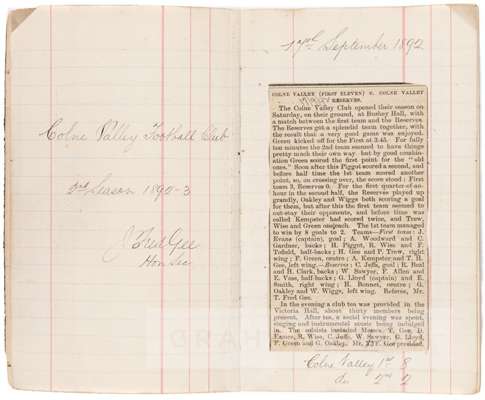 Colne Valley Football Club
3rd Season 1892-3
T Fred Gee
Hon Sec
17th September 1892
COLNE VALLEY (FIRST ELEVEN) v. COLNE VALLEY
RESERVES.
The Colne Valley Club opened their season on
Saturday, on their ground, at Bushey Hall, with
a match between the first team and the Reserves.
The Reserves got a splendid team together, with
the result that a very good game was enjoyed.
Green kicked off for the First at 3.45. For fully
ten minutes the 2nd team seemed to have things
pretty much their own way but by good combin-
ation Green scored the first point for the "old
ones." Soon after this Piggot scored a second, and
before half time the 1st team scored another
point, so, on crossing over, the score stood: First
team 3, Reserves 0. For the first quarter-of-an-
hour in the second half, the Reserves played up
grandly, Oakley and Wiggs both scoring a goal
for them, but after this the first team seemed to
out-stay their opponents, and before time was
called Kempster had scored twice, and Trew,
Wise and Green once each. The 1st team managed
to win by 8 goals to 2. Teams—First team: J.
Evans (captain), goal; A. Woodward and C.
Gardner, backs; H. Piggot, R. Wise and F.
Tofield, half-backs; H. Gee and P. Trew, right
wing; F. Green, centre; A. Kempster and T. H.
Gee, left wing.—Reserve: C. Jeffs, goal; R. Beal
and H. Clark, backs; W. Sawyer, F. Allen and
E. Vass, half-backs; G. Lloyd (captain) and E.
Smith, right wing; H. Bonnet, centre; G.
Oakley and W. Wiggs, left wing. Referee, Mr.
T. Fred Gee.
In the evening a club tea was provided in the
Victoria Hall, about thirty members being
present. After tea, a social evening was spent,
singing and instrumental music being indulged
in. The soloists included Messrs. T. Gee, D.
Eames, R. Wise, C. Jeffs, W. Sawyer, G. Lloyd,
F. Green and G. Oakley. Mr. T. F. Gee presided.
Colne Valley 1st 8
Do 2nd 2